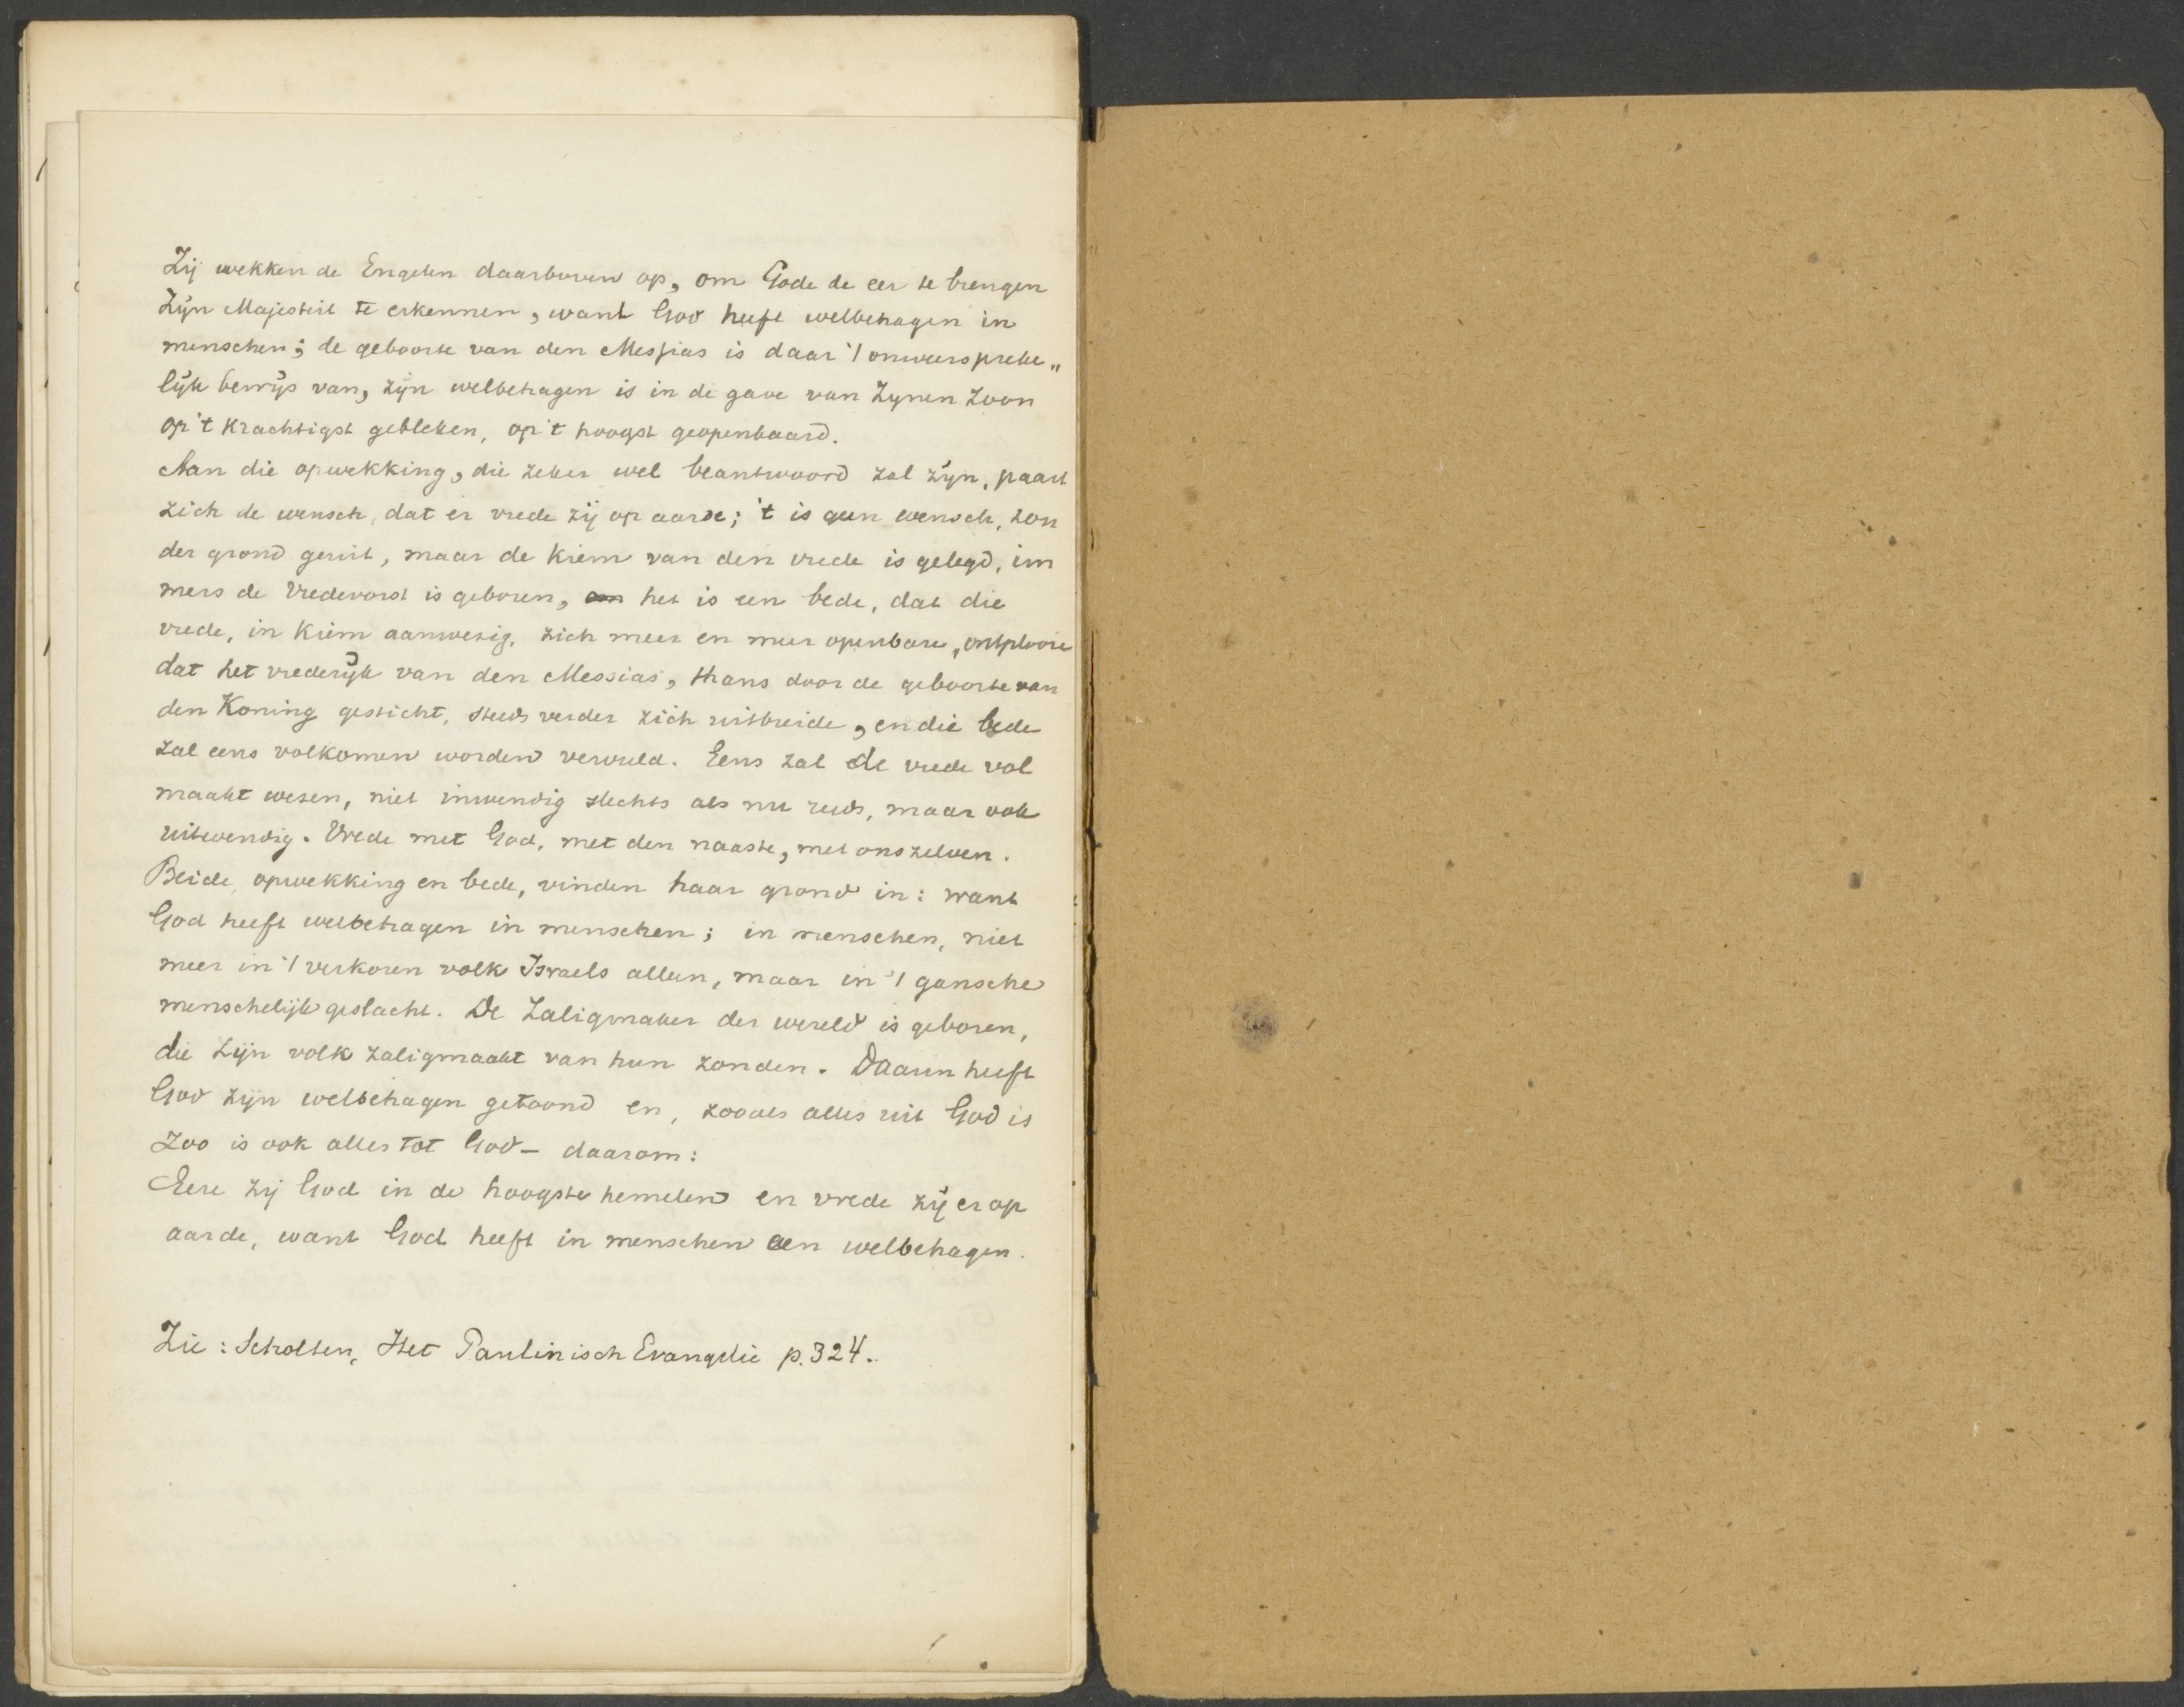 Zij wekken de Engelen daarboven op, om Gode de eer te brengen
Zijn Majesteit te erkennen, want God heeft welbehagen in
menschen; de geboorte van den Messias is daar 't onweersprekelijk„
lijk bewijs van, zijn welbehagen is in de gave van Zynen Zoon
op 't krachtigst gebleken, op 't hoogst geopenbaard.
Aan die opwekking, die zeker wel beantwoord zal zijn, paart
zich de wensch, dat er vrede zij op aarde; 't is geen wensch, zon
der grond geuit, maar de kiem van den vrede is gelegd, im
mers de Vredevorst is geboren, het is een bede, dat die
vrede, in kiem aanwezig, zich meer en meer openbare, ontplooie
dat het vrederijk van den Messias, thans door de geboorte van
den Koning gesticht, steeds verder zich uitbreide, en die bede
zal eens volkomen worden vervuld. Eens zal de vrede vol
maakt wesen, niet inwendig slechts als nu reeds, maar ook
uitwendig. Vrede met God, met den naaste, met ons zelven.
Beide, opwekking en bede, vinden haar grond in: want
God heeft welbehagen in menschen; in menschen, niet
meer in 't verkoren volk Israels alleen, maar in 't gansche
menschelijk geslacht. De Zaligmaker der wereld is geboren,
die Zijn volk zaligmaakt van hun zonden. Daarin heeft
God zijn welbehagen getoond en, zooals alles uit God is
Zoo is ook alles tot God – daarom:
Eere zij God in de hoogste hemelen en vrede zij er op
aarde, want God heeft in menschen een welbehagen.
Zie: Scholten, Het Paulinisch Evangelie p. 324.